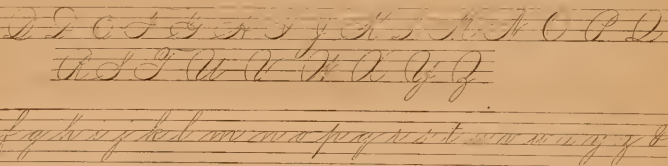 D E F G H I J K L M N O P Q
R S T U V W X Y Z
f g h i j k l m n o p q r s t u v w x y z